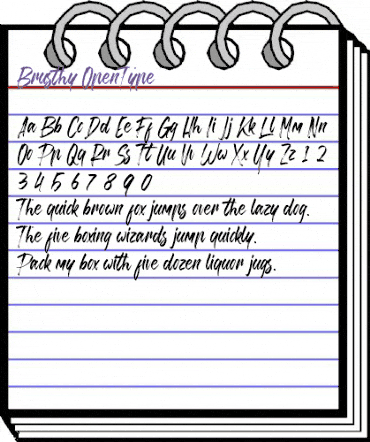 Brusthy OpenType
Aa Bb Cc Dd Ee Ff Gg Hh Ii Jj Kk Ll Mm Nn
Oo Pp Qq Rr Ss Tt Uu Vv Ww Xx Yy Zz 1 2
3 4 5 6 7 8 9 0
The quick brown fox jumps over the lazy dog.
The five boxing wizards jump quickly.
Pack my box with five dozen liquor jugs.